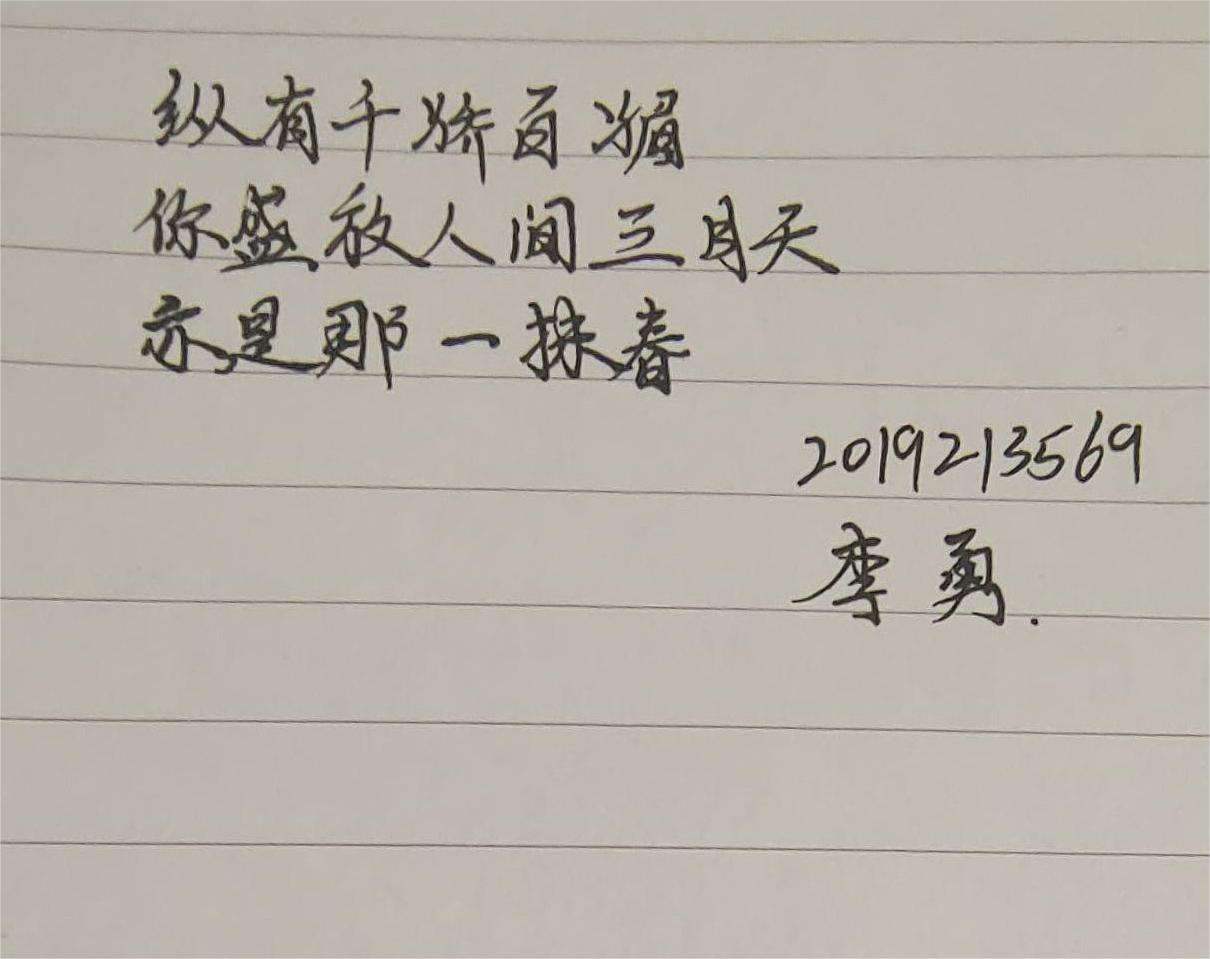 纵有千娇百媚
你盛放人间三月天
亦是那一抹春
2019213569
李勇.